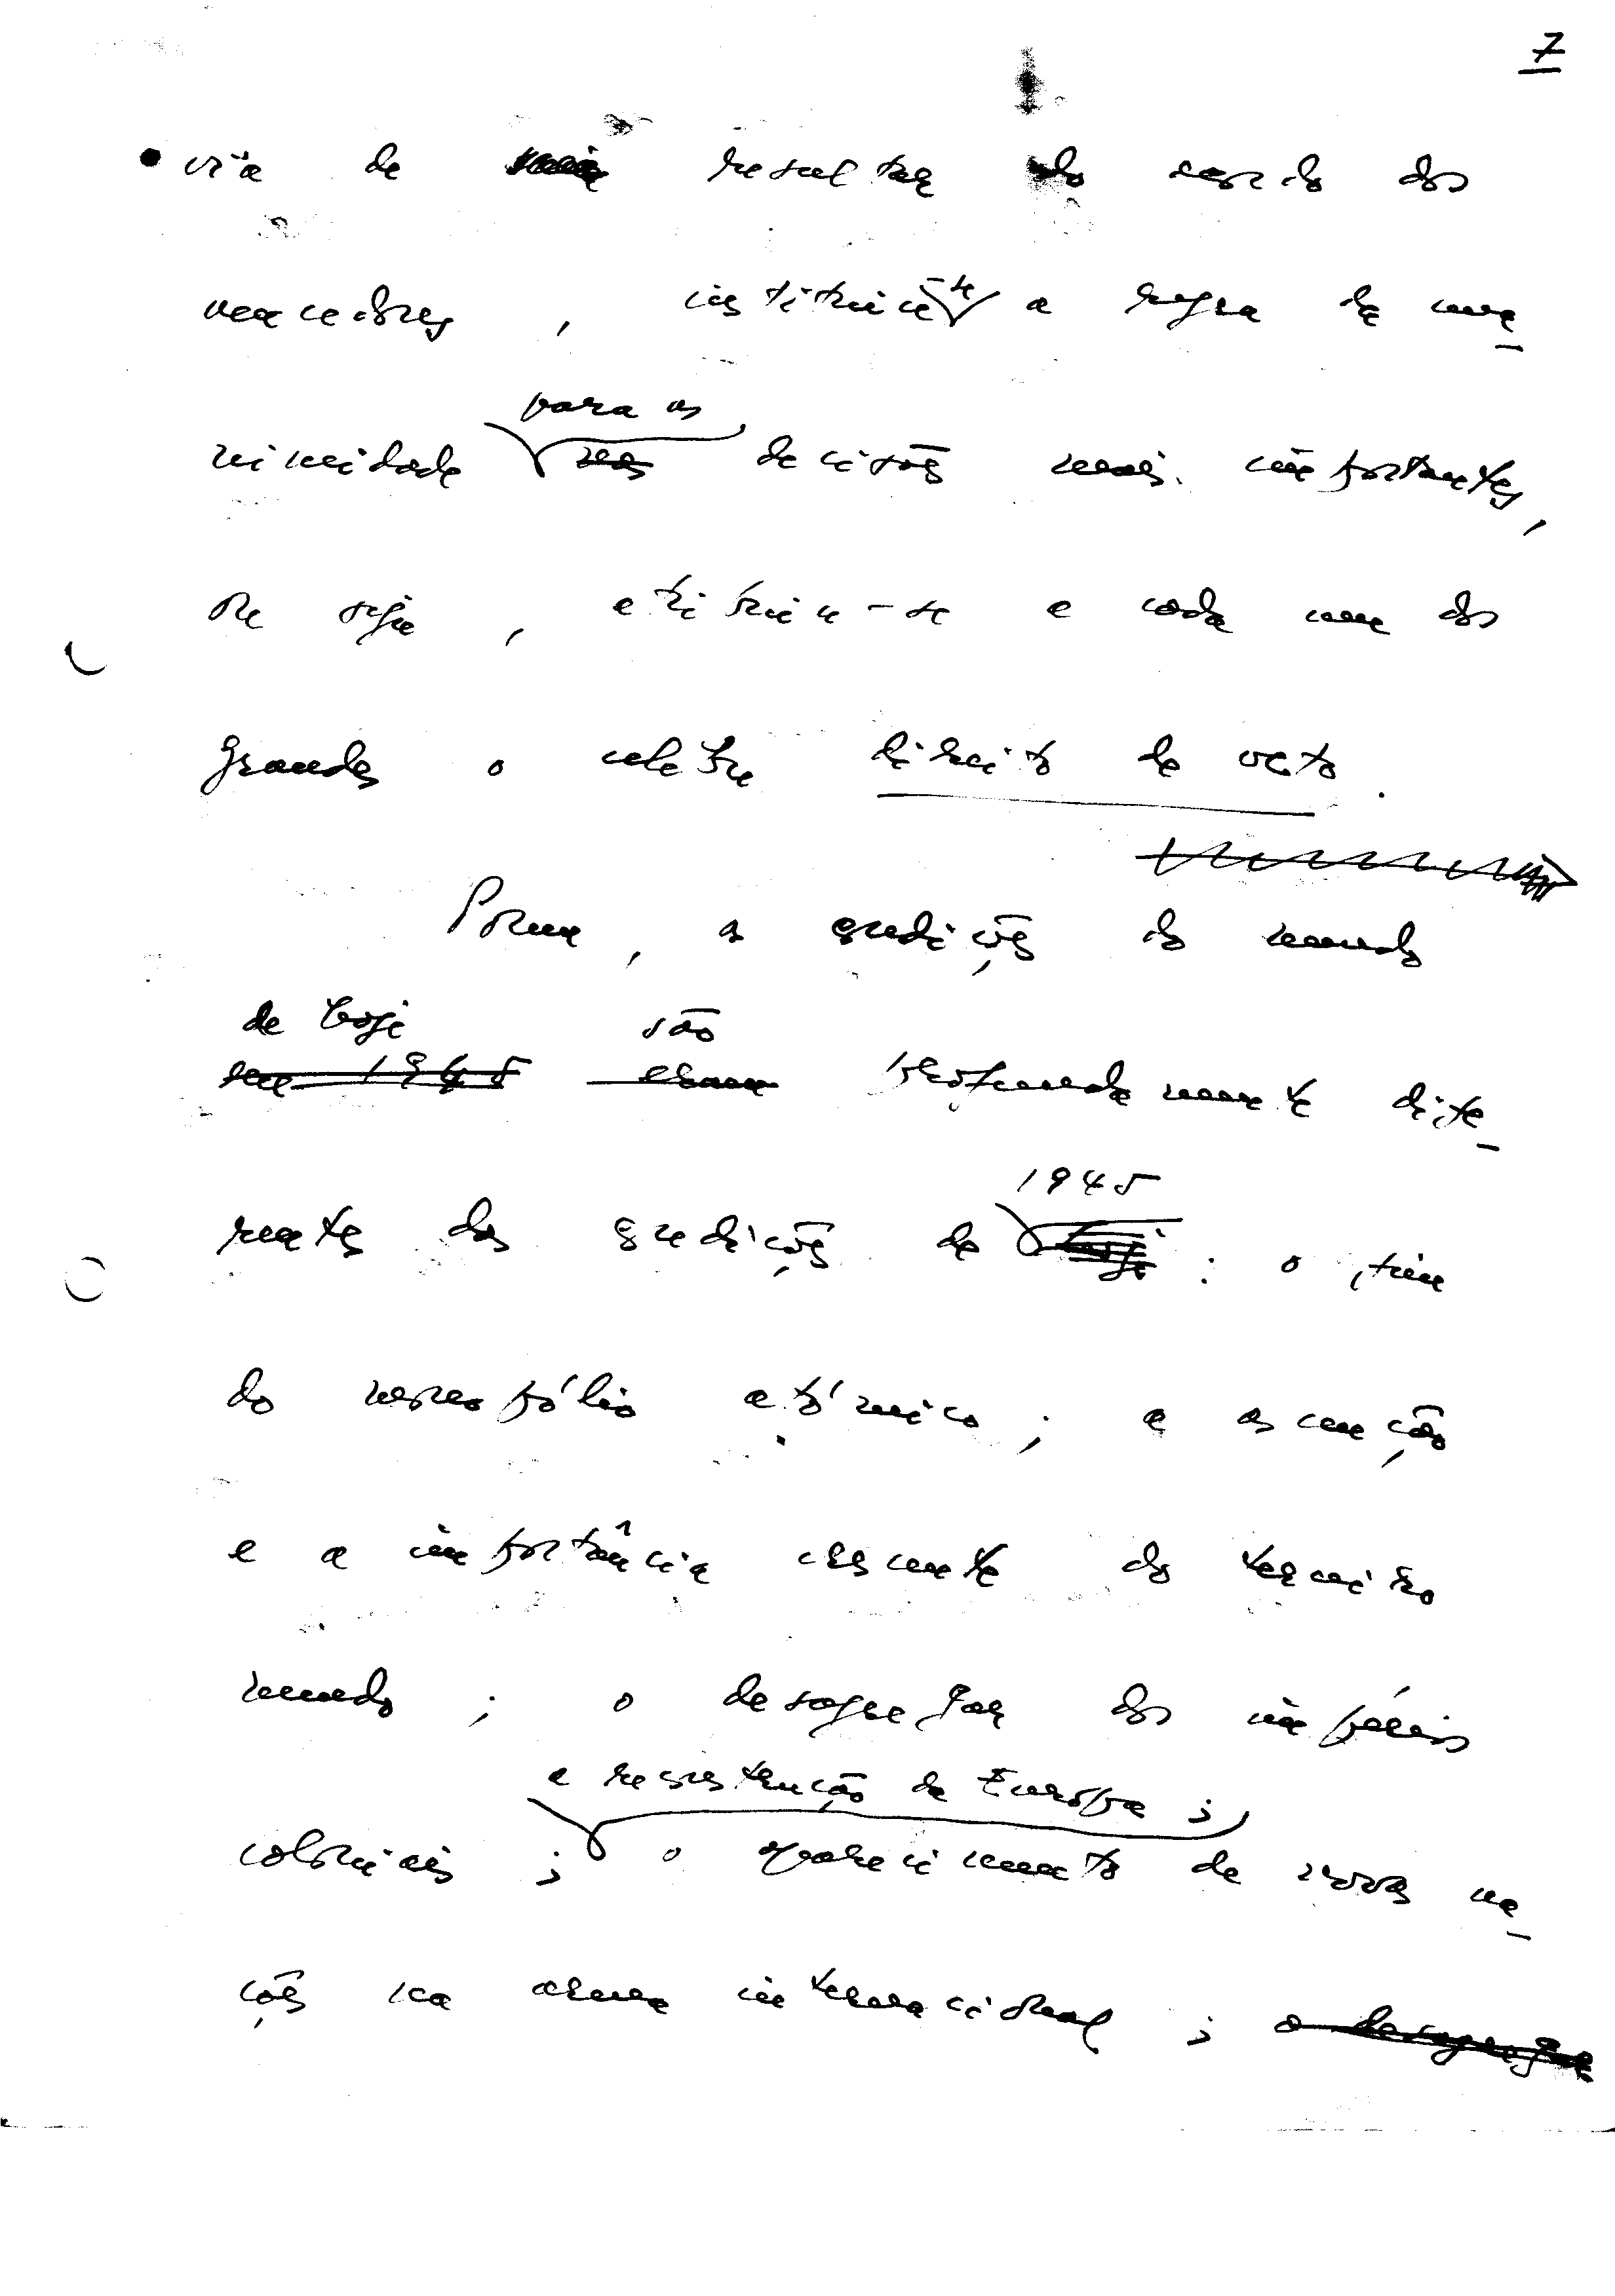 7
via de resultar do acordo dos
vencedores, instituiu-se a regra da una_
nimidade para as nas decisões mais importantes,
ou seja, atribuiu-se a cada um dos
Grandes o celebre direito de veto.
Porem, as condições do mundo
de hoje são
em 1945 eram profundamente dife_
1945
rentes das condições de hoje: o fim
do monopólio atómico; a ascenção
e a importância crescente do terceiro
mundo; o desagregar dos impérios
a reconstrução da Europa;
coloniais; o aparecimento de novas na_
ções na arena internacional; o desagregar